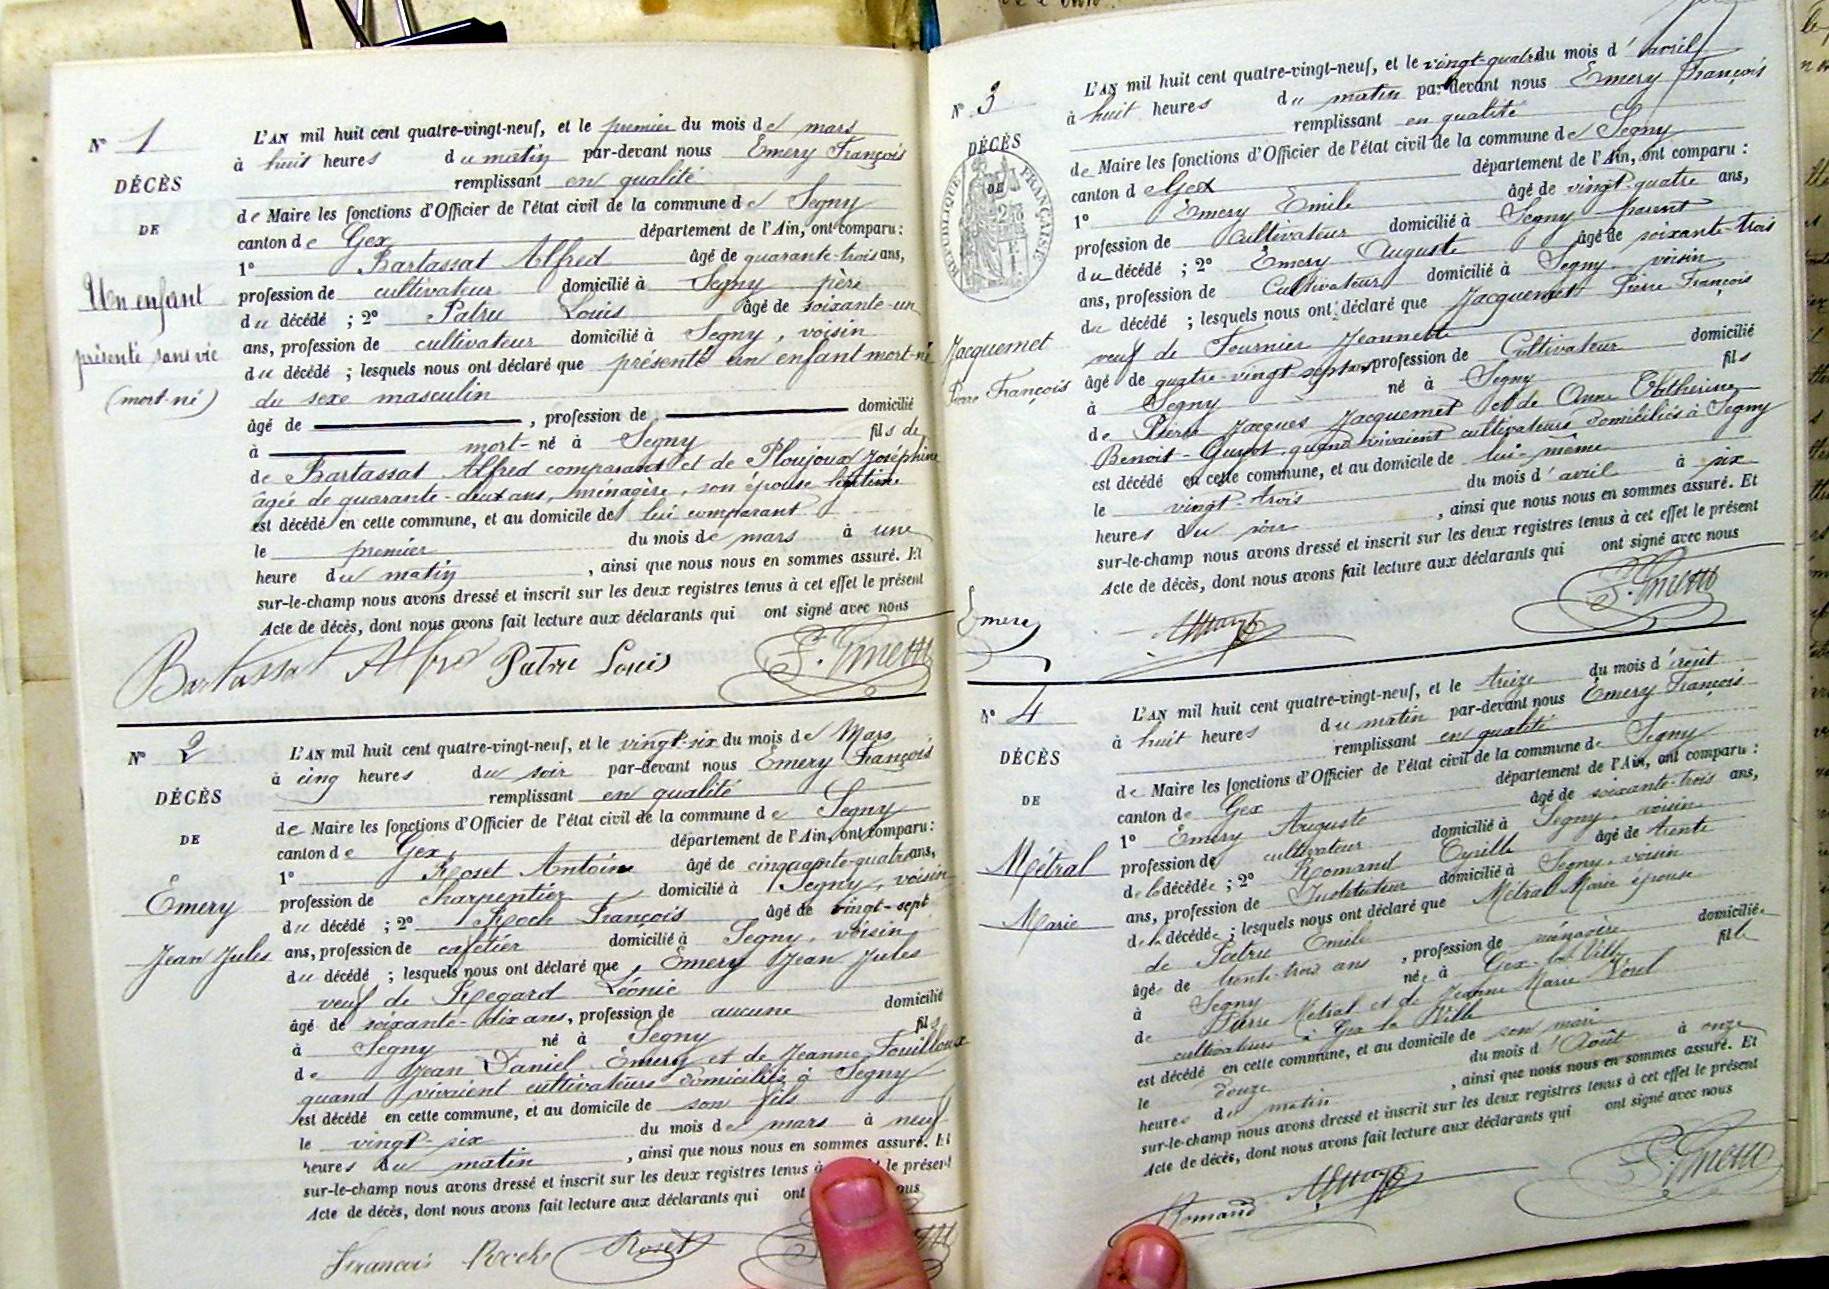 N° 1
DÉCÈS
DE
Un enfant
présenté sans vie
(mort-né)
L'AN mil huit cent quatre-vingt-neuf, et le premier du mois de mars
à huit heures du matin par-devant nous Emery François
remplissant en qualité
de Maire les fonctions d'Officier de l'état civil de la commune de Segny
canton de Gex département de l'Ain, ont comparu :
1° Bartassat Alfred âgé de quarante-trois ans,
profession de cultivateur domicilié à Segny père
du décédé ; 2° Patru Louis âgé de soixante-un
ans, profession de cultivateur domicilié à Segny, voisin
du décédé ; lesquels nous ont déclaré que présenté un enfant mort-né
du sexe masculin
âgé de , profession de domicilié
à mort-né à Segny fils de
de Bartassat Alfred comparant et de Ploujoux Joséphine
âgée de quarante-deux ans, ménagère, son épouse légitime
est décédé en cette commune, et au domicile de lui comparant
le premier du mois de mars à une
heure du matin , ainsi que nous nous en sommes assuré. Et
sur-le-champ nous avons dressé et inscrit sur les deux registres tenus à cet effet le présent
Acte de décès, dont nous avons fait lecture aux déclarants qui ont signé avec nous
Bartassat Alfred Patru Louis F. Emery
N° 2
DÉCÈS
DE
Emery
Jean Jules
L'AN mil huit cent quatre-vingt-neuf, et le vingt-six du mois de Mars
à cinq heures du soir par-devant nous Emery François
remplissant en qualité
de Maire les fonctions d'Officier de l'état civil de la commune de Segny
canton de Gex département de l'Ain, ont comparu :
1° Roset Antoine âgé de cinquante-quatre ans,
profession de charpentier domicilié à Segny, voisin
du décédé ; 2° Roch François âgé de vingt-sept
ans, profession de cafetier domicilié à Segny, voisin
du décédé ; lesquels nous ont déclaré que Emery Jean Jules
veuf de Regard Léonie
âgé de soixante-dix ans, profession de aucune domicilié
à Segny né à Segny fils
de Jean Daniel Emery et de Jeanne Fouilloux
quand vivaient cultivateurs domiciliés à Segny
est décédé en cette commune, et au domicile de son fils
le vingt-six du mois de mars à neuf
heures du matin , ainsi que nous nous en sommes assuré. Et
sur-le-champ nous avons dressé et inscrit sur les deux registres tenus à le présent
Acte de décès, dont nous avons fait lecture aux déclarants qui ont nous
François Roch Roset
N° 3
DÉCÈS
DE
RÉPUBLIQUE FRANÇAISE
Jacquemet
Pierre François
L'AN mil huit cent quatre-vingt-neuf, et le vingt-quatre du mois d'avril
à huit heures du matin par-devant nous Emery François
remplissant en qualité
de Maire les fonctions d'Officier de l'état civil de la commune de Segny
canton de Gex département de l'Ain, ont comparu :
1° Emery Emile âgé de vingt-quatre ans,
profession de Cultivateur domicilié à Segny parent
du décédé ; 2° Emery Auguste âgé de soixante-trois
ans, profession de Cultivateur domicilié à Segny voisin
du décédé ; lesquels nous ont déclaré que Jacquemet Pierre François
veuf de Fournier Jeannette
âgé de quatre-vingt-sept ans profession de Cultivateur domicilié
à Segny né à Segny fils
de Pierre Jacques Jacquemet et de Anne Catherine
Benoit-Guyot, quand vivaient cultivateurs domiciliés à Segny
est décédé en cette commune, et au domicile de lui-même
le vingt-trois du mois d'avril à six
heures du soir , ainsi que nous nous en sommes assuré. Et
sur-le-champ nous avons dressé et inscrit sur les deux registres tenus à cet effet le présent
Acte de décès, dont nous avons fait lecture aux déclarants qui ont signé avec nous
Emery F. Emery
N° 4
DÉCÈS
DE
Métral
Marie
L'AN mil huit cent quatre-vingt-neuf, et le treize du mois d'août
à huit heures du matin par-devant nous Emery François
remplissant en qualité
de Maire les fonctions d'Officier de l'état civil de la commune de Segny
canton de Gex département de l'Ain, ont comparu :
1° Emery Auguste âgé de soixante-trois ans,
profession de cultivateur domicilié à Segny, voisin
de la décédée ; 2° Romand Cyrille âgé de trente
ans, profession de Instituteur domicilié à Segny, voisin
de la décédée ; lesquels nous ont déclaré que Métral Marie épouse
de Patru Emile
âgée de trente-trois ans , profession de ménagère domiciliée
à Segny née à Gex-la-Ville fille
de Pierre Métral et de Jeanne Marie
cultivateurs à Gex la Ville
est décédé en cette commune, et au domicile de son mari
le douze du mois d'Août à onze
heures du matin , ainsi que nous nous en sommes assuré. Et
sur-le-champ nous avons dressé et inscrit sur les deux registres tenus à cet effet le présent
Acte de décès, dont nous avons fait lecture aux déclarants qui ont signé avec nous
Romand F. Emery